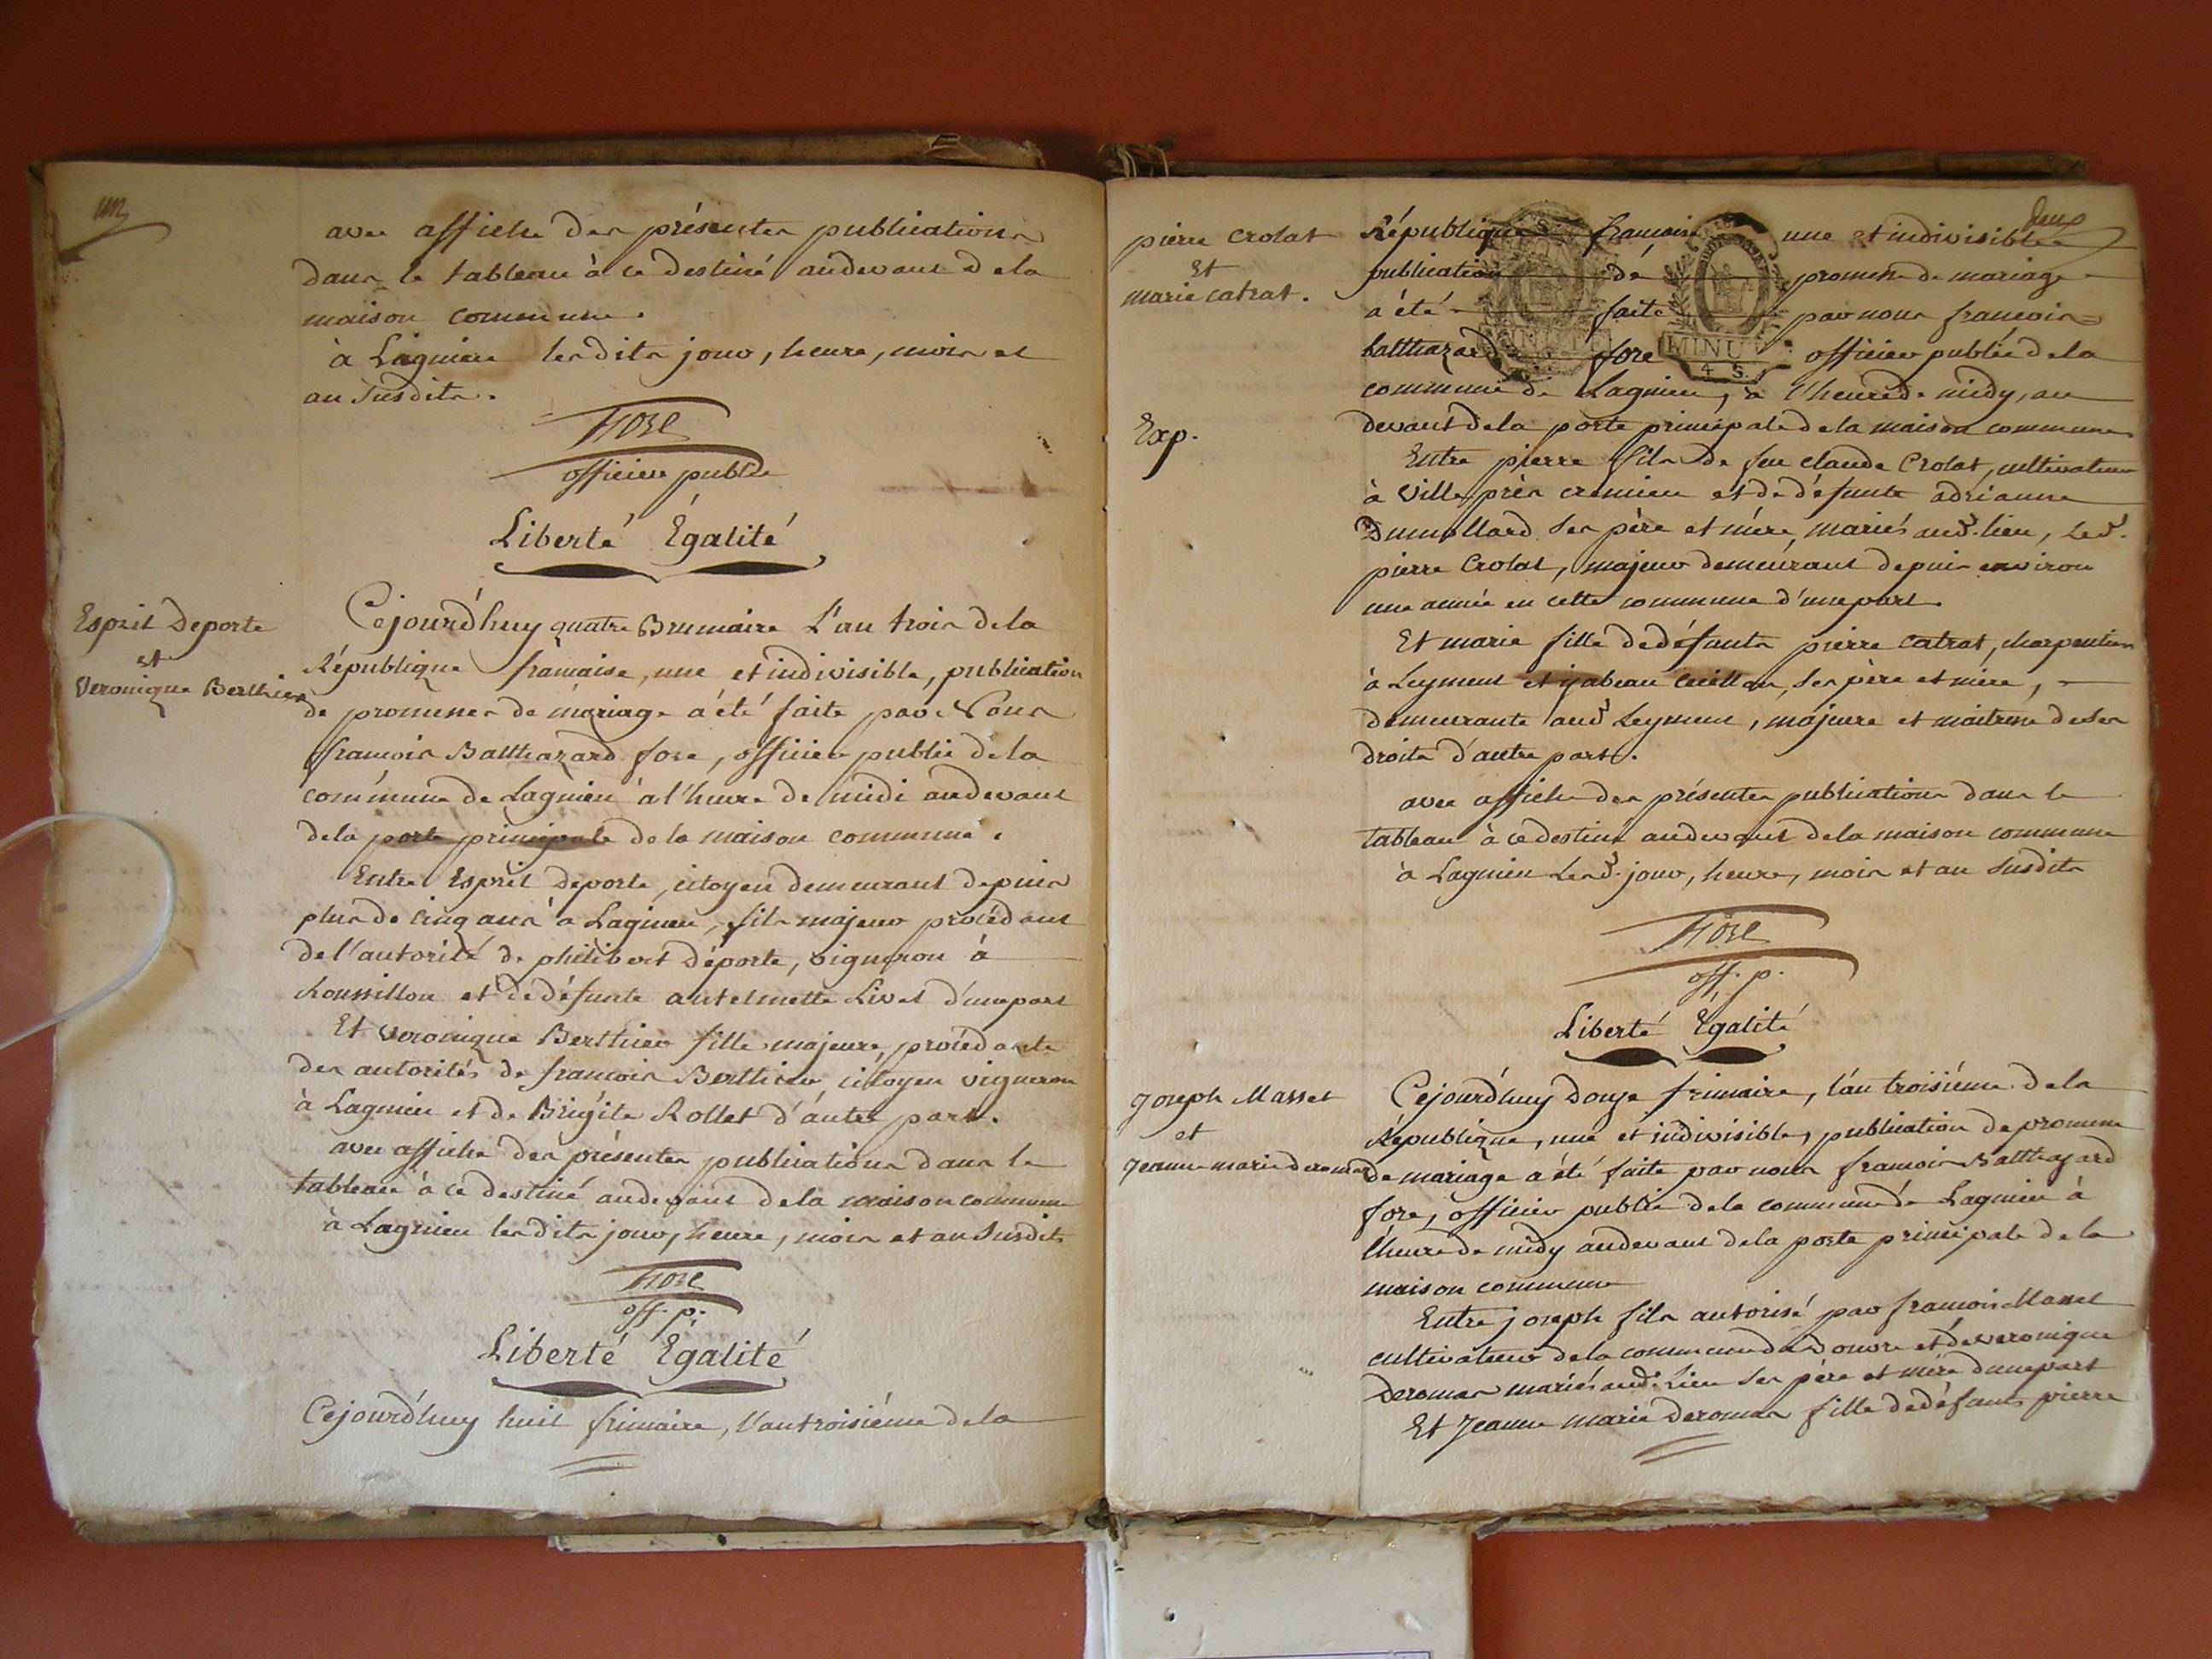 un
avec affiche des présentes publications
dans le tableau à ce destiné audevant de la
maison commune.
à Lagnieu lesdits jour, heure, mois et
an Susdits.
fore
officier public
Liberté Égalité
Esprit Deporte
et
Veronique Berthier
Cejourd'huy quatre Brumaire L'an trois de la
République françaisse, une et indivisible, publication
de promesses de mariage a été faite par Nous
françois Balthazard fore, officier public de la
commune de Lagnieu a l'heure de midi audevant
de la porte principale de la maison commune.
Entre Esprit Deporte, citoyen demeurant depuis
plus de cinq ans a Lagnieu, fils majeur procédant
de l'autorité de philibert Déporte, vigneron à
Roussillon et de défunte antelmette Livet d'une part
Et veronique Berthier fille majeure, procédante
des autorités de francois Berthier citoyen vigneron
à Lagnieu et de Brigite Rollet d'autre part.
avec affiche des présentes publications dans le
tableau à ce destiné audevant de la maison commune
à Lagnieu lesdits jour, heure, mois et an Susdits
fore
off. p.
Liberté Égalité
Cejourd'huy huit frimaire, l'an troisiéme de la
deux
pierre Crolat
Et
marie catrat.
Exp.
République francaise une et indivisible
publication de promesse de mariage
a été faite par nous francois
balthazard fore officier public de la
MINUTE
MINU
4 S.
commune de Lagnieu, à l'heure de midy, au
devant de la porte principale de la maison commune
Entre pierre fils de feu claude Crolat, cultivateur
à Ville près cremieu et de défunte adrianne
Dumollard ses père et mère, mariés aud. lieu, Led.
pierre Crolat, majeur demeurant depuis environ
une année en cette commune d'une part.
Et marie fille de défunts pierre catrat, charpentier
à Leyment et ysabeau ses père et mère,
demeurante aud Leyment, majeure et maitresse de ses
droits d'autre part.
avec affiche des présentes publications dans le
tableau à ce destiné audevant de la maison commune
à Lagnieu Lesd. jour, heure, mois et an Susdits
fore
off. p.
Liberté Égalité
Joseph Masset
et
Jeanne marie deromas
Cejourd'huy Douze frimaire, l'an troisiéme de la
République, une et indivisible, publication de promesse
de mariage a été faite par nous francois Balthazard
fore, officier public de la commune de Lagnieu à
l'heure de midy audevant de la porte principale de la
maison commune
Entre joseph fils autorisé par francois Masset
cultivateur de la commune de Douvre et de veronique
Deromas mariés aud. Lieu ses père et mère d'une part
Et Jeanne marie Deromas fille de défunts pierre